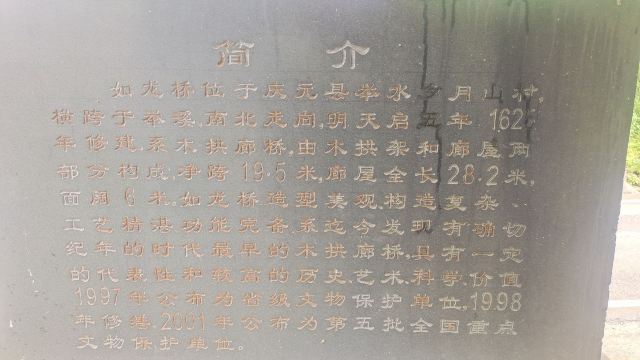 简 介
如龙桥位于庆元县举水乡月山村,
横跨于举溪,南北走向,明天启五年1625
年修建,系木拱廊桥,由木拱架和廊屋两
部分构成,净跨19.5米,廊屋全长28.2米,
面阔6米,如龙桥造型美观,构造复杂,
工艺精湛,功能完备,系迄今发现有确切
纪年的时代最早的木拱廊桥,具有一定
的代表性和较高的历史、艺术、科学价值
1997年公布为省级文物保护单位,1998
年修巷,2001年公布为第五批全国重点
文物保护单位。